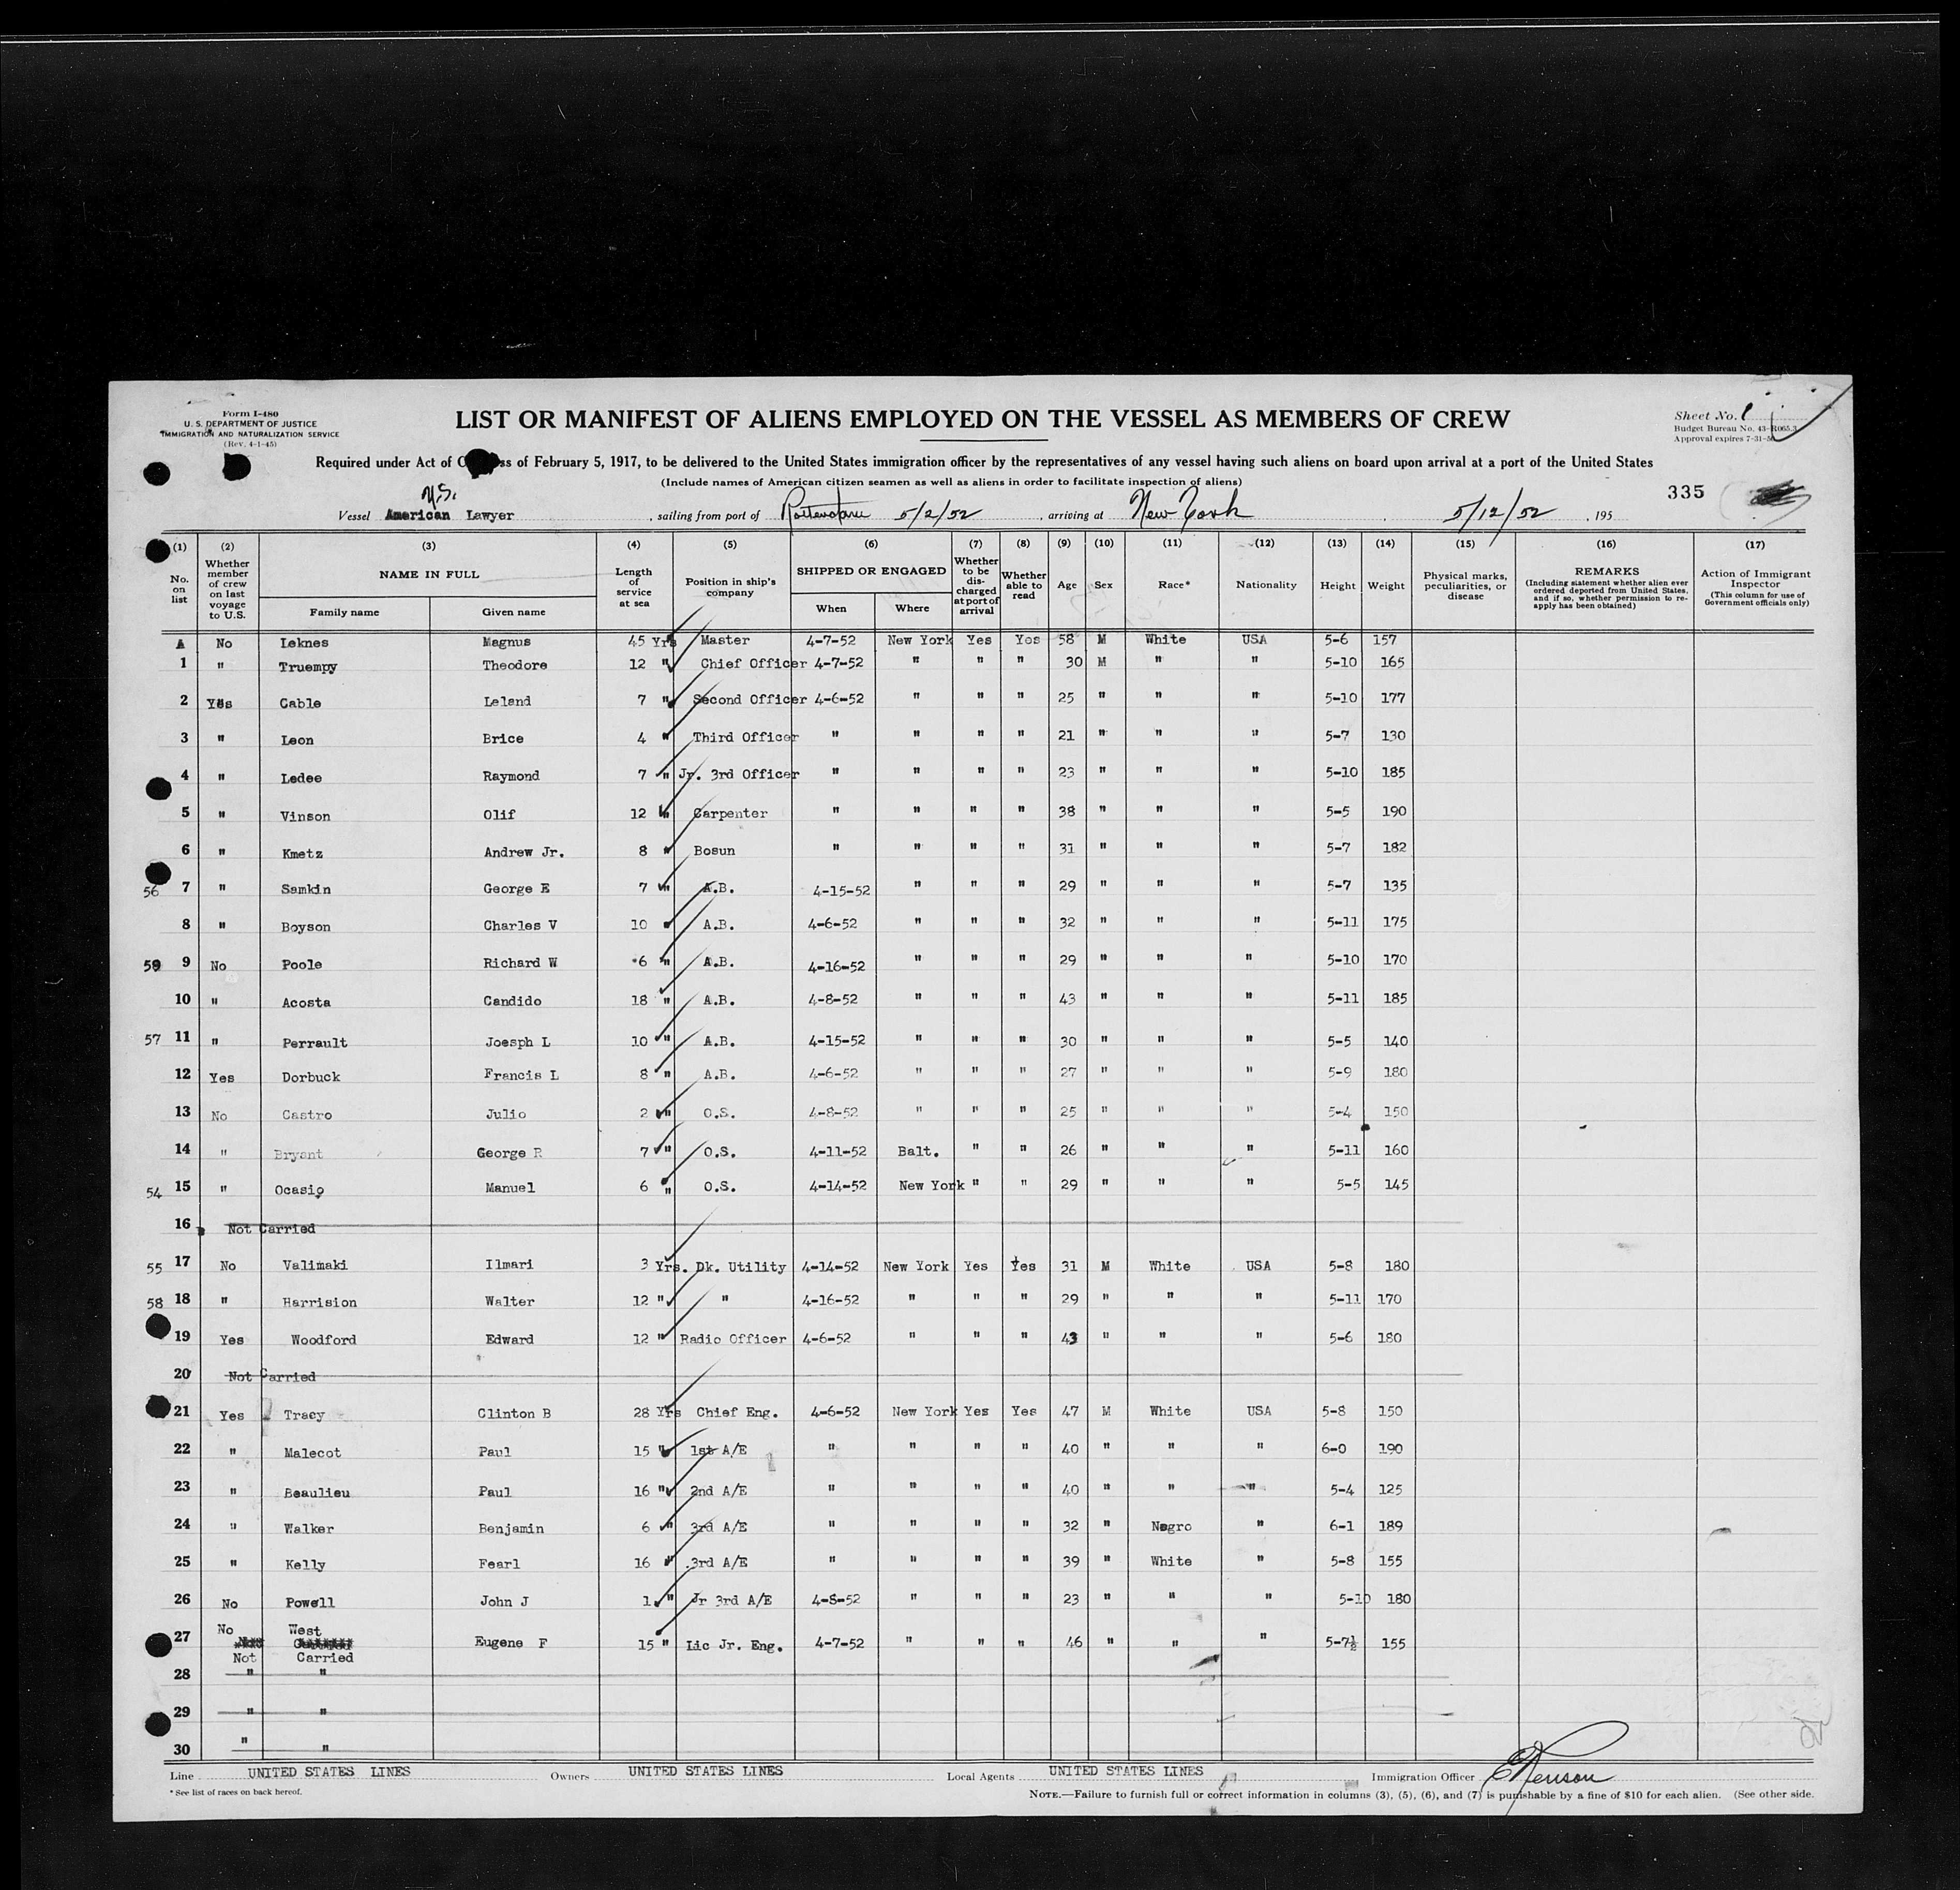 Form I-480
U. S. DEPARTMENT OF JUSTICE
IMMIGRATION AND NATURALIZATION SERVICE
(Rev. 4-1-45)
LIST OR MANIFEST OF ALIENS EMPLOYED ON THE VESSEL AS MEMBERS OF CREW
Sheet No. 1
Budget Bureau No. 43-R065.3
Approval expires 7-31-5
Required under Act of C ss of February 5, 1917, to be delivered to the United States immigration officer by the representatives of any vessel having such aliens on board upon arrival at a port of the United States
(Include names of American citizen seamen as well as aliens in order to facilitate inspection of aliens)
335
U.S.
Vessel American Lawyer , sailing from port of Rotterdam 5/2/52 , arriving at New York , 5/12/52 , 195
(1) (2) (3) (4) (5) (6) (7) (8) (9) (10) (11) (12) (13) (14) (15) (16) (17)
No. on list Whether member of crew on last voyage to U.S. NAME IN FULL Family name Given name Length of service at sea Position in ship's company SHIPPED OR ENGAGED When Where Whether to be discharged at port of arrival Whether able to read Age Sex Race* Nationality Height Weight Physical marks, peculiarities, or disease REMARKS (Including statement whether alien ever ordered deported from United States, and if so, whether permission to reapply has been obtained) Action of Immigrant Inspector (This column for use of Government officials only)
A No Leknes Magnus 45 Yrs Master 4-7-52 New York Yes Yes 58 M White USA 5-6 157
1 " Truempy Theodore 12 " Chief Officer 4-7-52 " " " 30 M " " 5-10 165
2 Yes Cable Leland 7 " Second Officer 4-6-52 " " " 25 " " " 5-10 177
3 " Leon Brice 4 " Third Officer " " " " 21 " " " 5-7 130
4 " Ledee Raymond 7 " Jr. 3rd Officer " " " " 23 " " " 5-10 185
5 " Vinson Olif 12 " Carpenter " " " " 38 " " " 5-5 190
6 " Kmetz Andrew Jr. 8 " Bosun " " " " 31 " " " 5-7 182
56 7 " Samkin George E 7 " A.B. 4-15-52 " " " 29 " " " 5-7 135
8 " Boyson Charles V 10 " A.B. 4-6-52 " " " 32 " " " 5-11 175
59 9 No Poole Richard W 6 " A.B. 4-16-52 " " " 29 " " " 5-10 170
10 " Acosta Candido 18 " A.B. 4-8-52 " " " 43 " " " 5-11 185
57 11 " Perrault Joesph L 10 " A.B. 4-15-52 " " " 30 " " " 5-5 140
12 Yes Dorbuck Francis L 8 " A.B. 4-6-52 " " " 27 " " " 5-9 180
13 No Castro Julio 2 " O.S. 4-8-52 " " " 25 " " " 5-4 150
14 " Bryant George R 7 " O.S. 4-11-52 Balt. " " 26 " " " 5-11 160
54 15 " Ocasio Manuel 6 " O.S. 4-14-52 New York " " 29 " " " 5-5 145
16 Not Carried
55 17 No Valimaki Ilmari 3 Yrs. Dk. Utility 4-14-52 New York Yes Yes 31 M White USA 5-8 180
58 18 " Harrision Walter 12 " " 4-16-52 " " " 29 " " " 5-11 170
19 Yes Woodford Edward 12 " Radio Officer 4-6-52 " " " 43 " " " 5-6 180
20 Not Carried
21 Yes Tracy Clinton B 28 Yrs Chief Eng. 4-6-52 New York Yes Yes 47 M White USA 5-8 150
22 " Malecot Paul 15 " 1st A/E " " " " 40 " " " 6-0 190
23 " Beaulieu Paul 16 " 2nd A/E " " " " 40 " " " 5-4 125
24 " Walker Benjamin 6 " 3rd A/E " " " " 32 " Negro " 6-1 189
25 " Kelly Fearl 16 " 3rd A/E " " " " 39 " White " 5-8 155
26 No Powell John J 1 " Jr 3rd A/E 4-8-52 " " " 23 " " " 5-10 180
27 No West Eugene F 15 " Lic Jr. Eng. 4-7-52 " " " 46 " " " 5-7½ 155
Not Carried
28 " "
29 " "
30 " "
Line UNITED STATES LINES Owners UNITED STATES LINES Local Agents UNITED STATES LINES Immigration Officer
* See list of races on back hereof.
NOTE.—Failure to furnish full or correct information in columns (3), (5), (6), and (7) is punishable by a fine of $10 for each alien. (See other side.